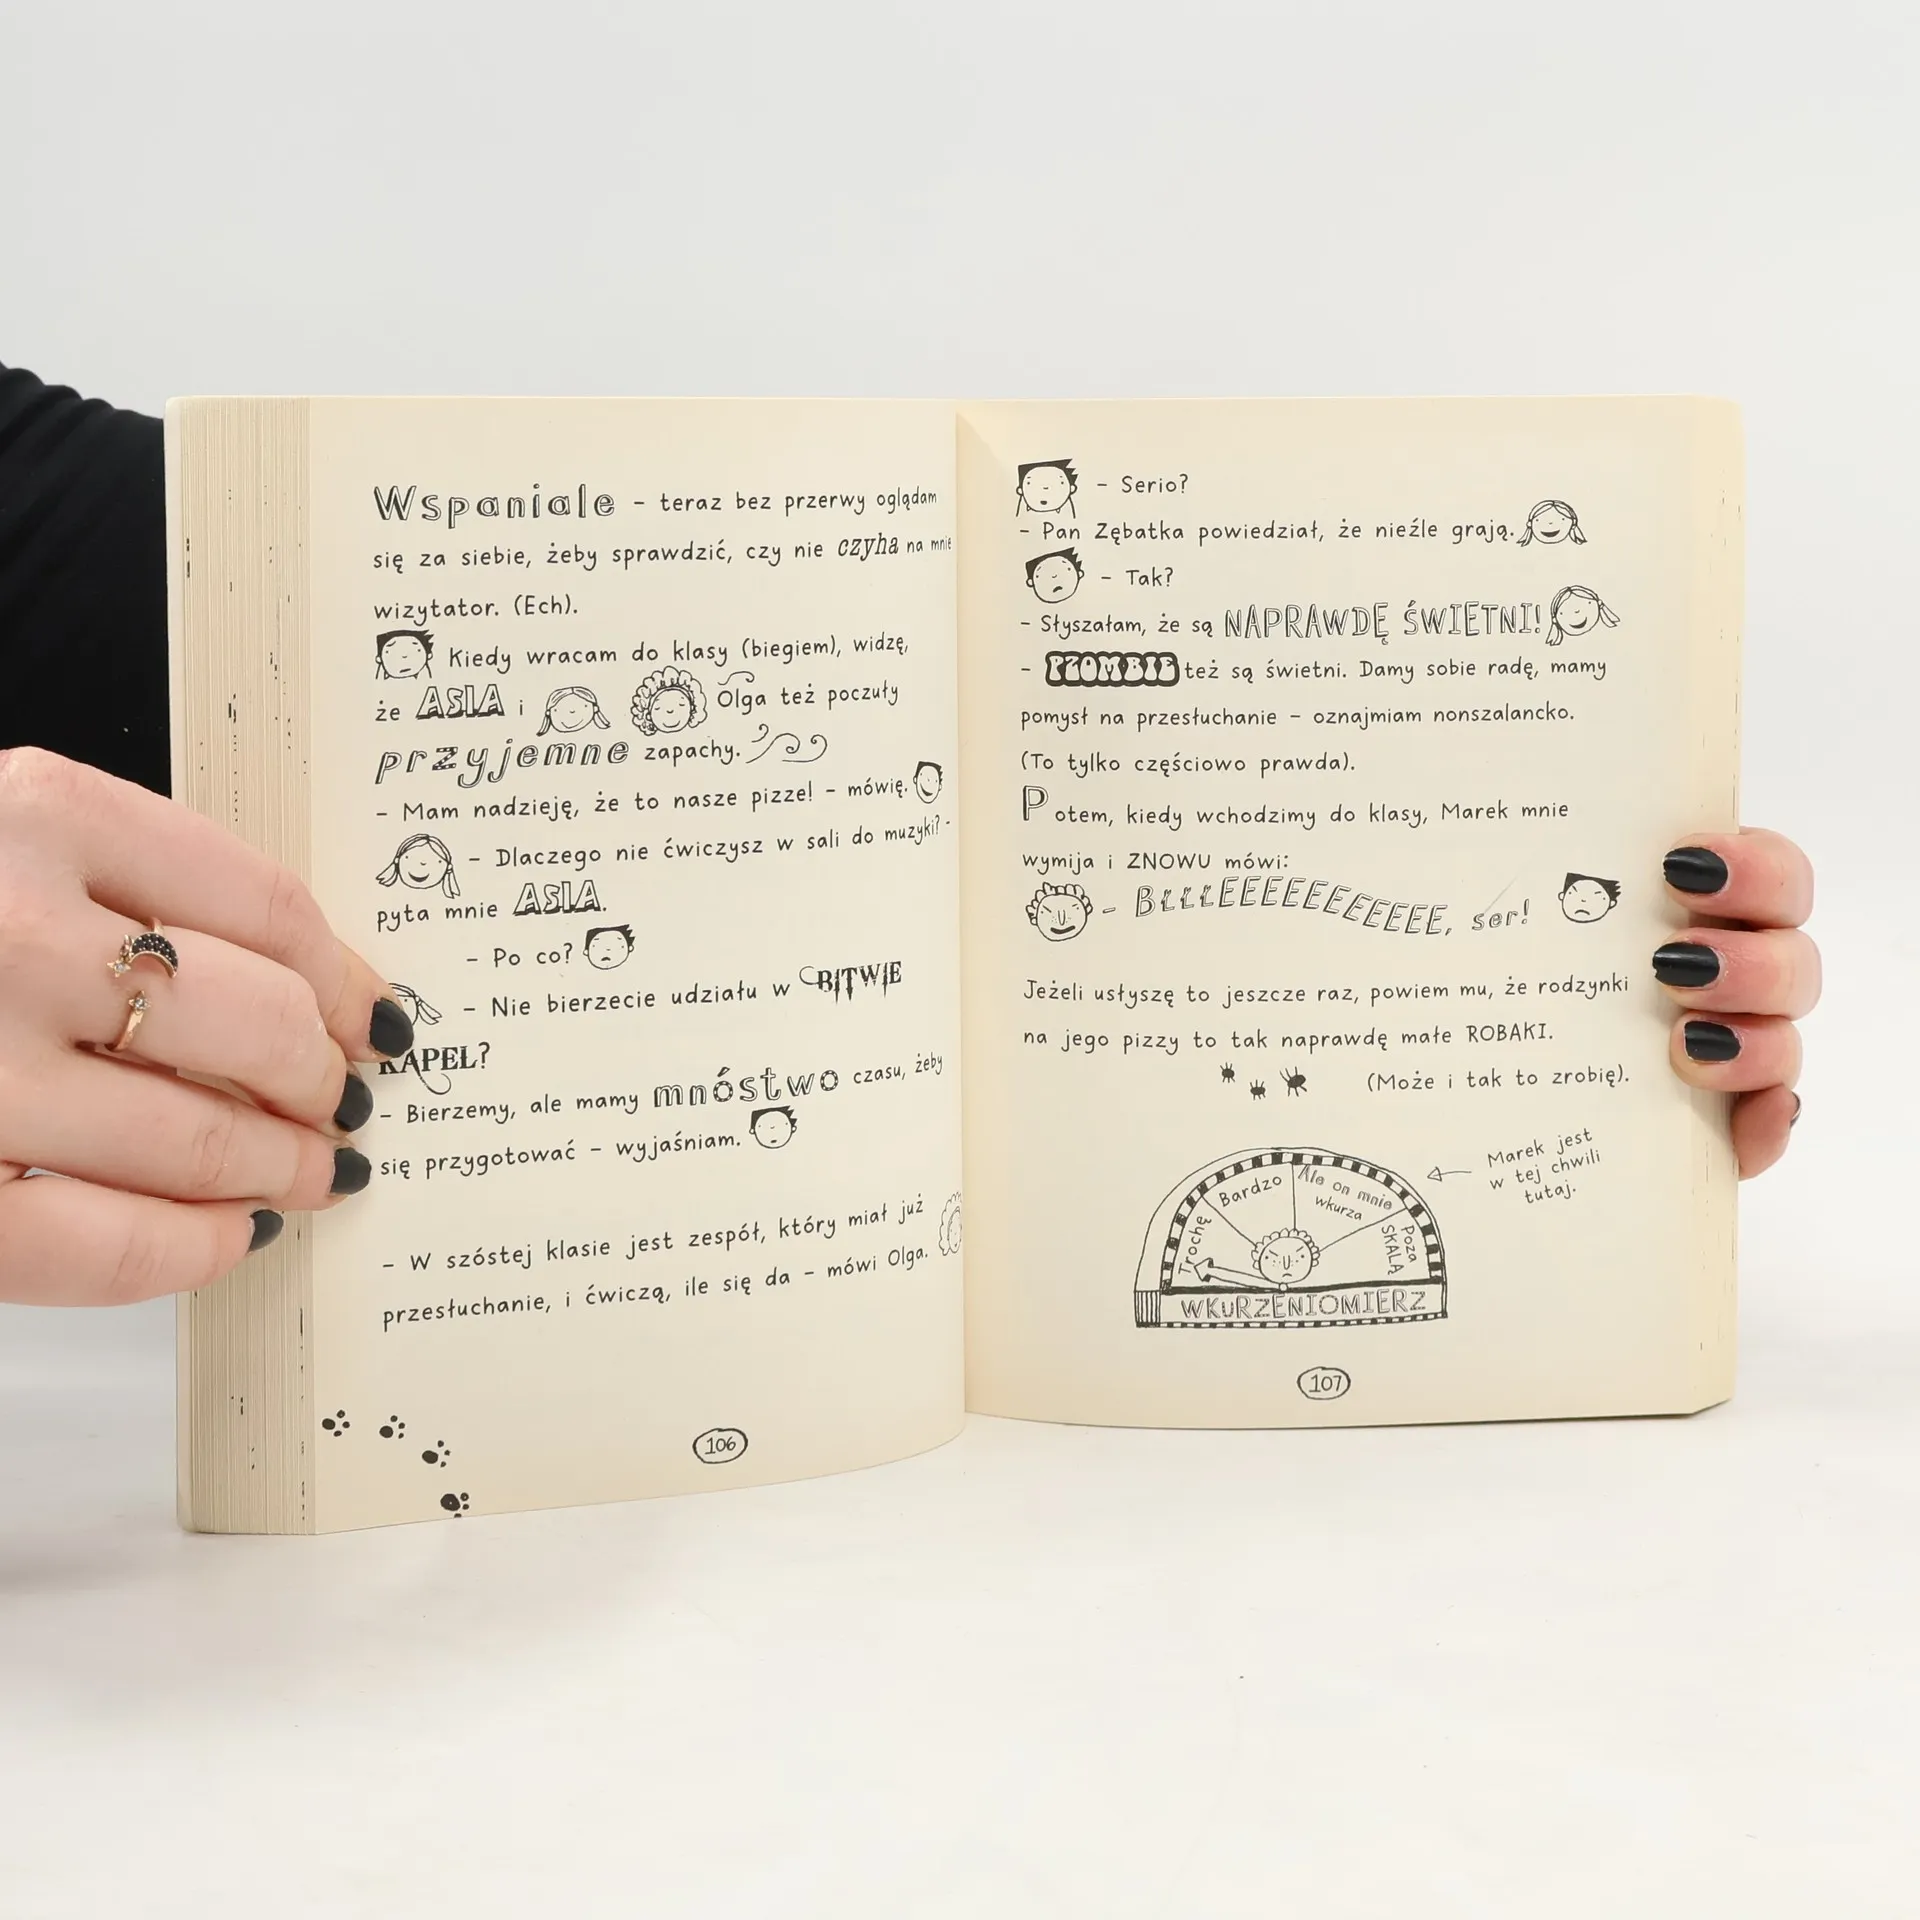 Wspaniale – teraz bez przerwy oglądam
się za siebie, żeby sprawdzić, czy nie czyha na mnie
wizytator. (Ech).
Kiedy wracam do klasy (biegiem), widzę,
że ASIA i Olga też poczuły
przyjemne zapachy.
– Mam nadzieję, że to nasze pizze! – mówię.
– Dlaczego nie ćwiczysz w sali do muzyki? –
pyta mnie ASIA.
– Po co?
– Nie bierzecie udziału w BITWIE
KAPEL?
– Bierzemy, ale mamy mnóstwo czasu, żeby
się przygotować – wyjaśniam.
– W szóstej klasie jest zespół, który miał już
przesłuchanie, i ćwiczą, ile się da – mówi Olga.
106
– Serio?
– Pan Zębatka powiedział, że nieźle grają.
– Tak?
– Słyszałam, że są NAPRAWDĘ ŚWIETNI!
– PZOMBIE też są świetni. Damy sobie radę, mamy
pomysł na przesłuchanie – oznajmiam nonszalancko.
(To tylko częściowo prawda).
Potem, kiedy wchodzimy do klasy, Marek mnie
wymija i ZNOWU mówi:
– BŁŁŁEEEEEEEEEEEEE, ser!
Jeżeli usłyszę to jeszcze raz, powiem mu, że rodzynki
na jego pizzy to tak naprawdę małe ROBAKI.
(Może i tak to zrobię).
Marek jest
w tej chwili
tutaj.
Trochę
Bardzo
Ale on mnie
wkurza
Poza
SKALĄ
WKURZENIOMIERZ
107